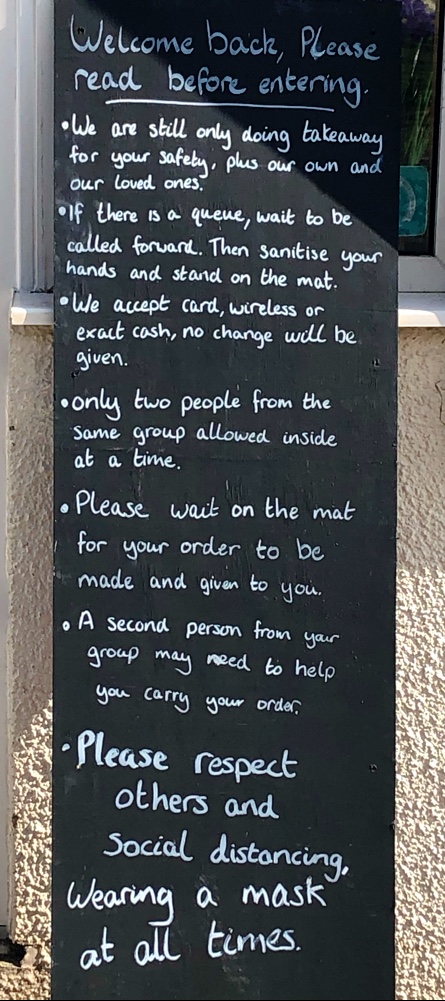 Welcome back, Please
read before entering.
•We are still only doing takeaway
for your safety, plus our own and
our loved ones.
•If there is a queue, wait to be
called forward. Then sanitise your
hands and stand on the mat.
•We accept card, wireless or
exact cash, no change will be
given.
•only two people from the
same group allowed inside
at a time.
•Please wait on the mat
for your order to be
made and given to you.
•A second person from your
group may need to help
you carry your order.
•Please respect
others and
Social distancing,
Wearing a mask
at all times.